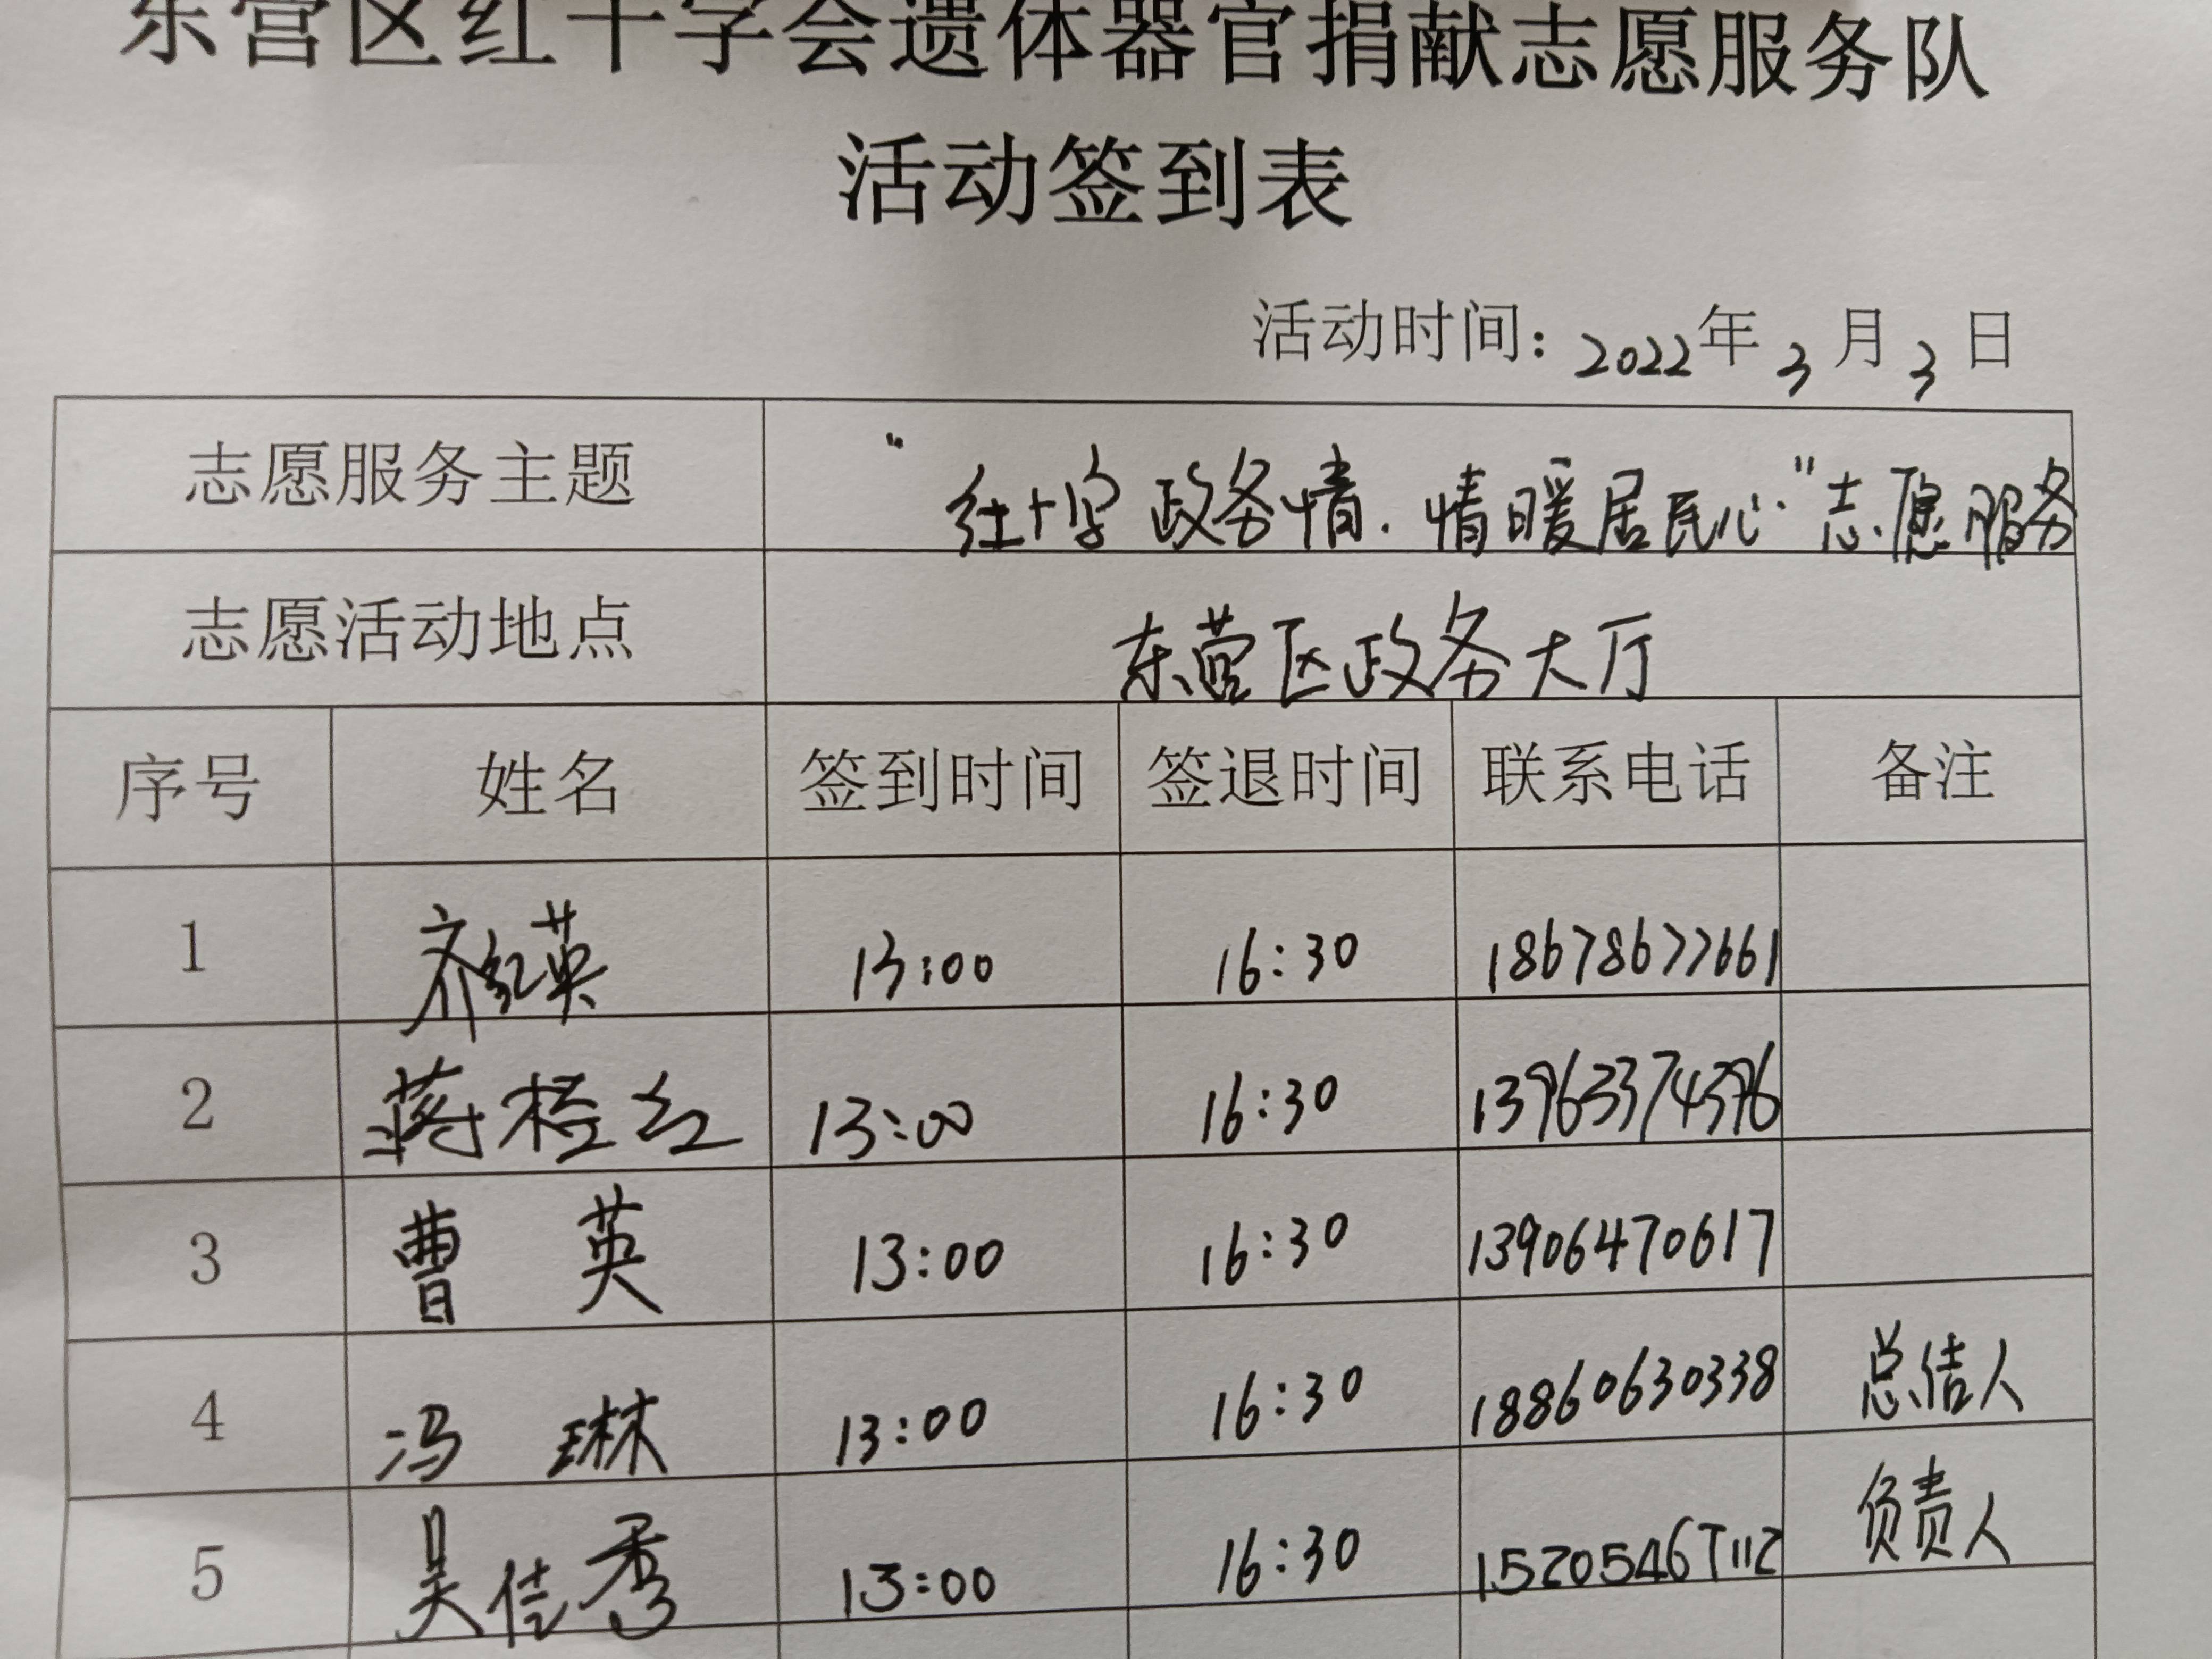 东营区红十字会遗体器官捐献志愿服务队
活动签到表
活动时间：2022年3月3日
志愿服务主题 “红十字政务情.情暖居民心”志愿服务
志愿活动地点 东营区政务大厅
序号 姓名 签到时间 签退时间 联系电话 备注
1 齐红英 13:00 16:30 18678677661
2 蒋 红 13:00 16:30 13963374396
3 曹英 13:00 16:30 13906470617
4 冯琳 13:00 16:30 18860630338 总结人
5 吴佳秀 13:00 16:30 15205467112 负责人